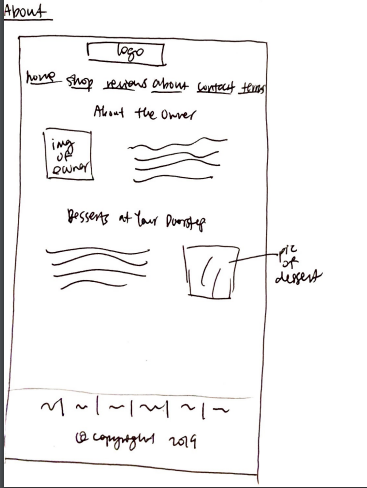 About
logo
home shop reviews about contact terms
About the Owner
img
of
owner
Desserts at Your Doorstep
pic
of
dessert
© copyright 2019